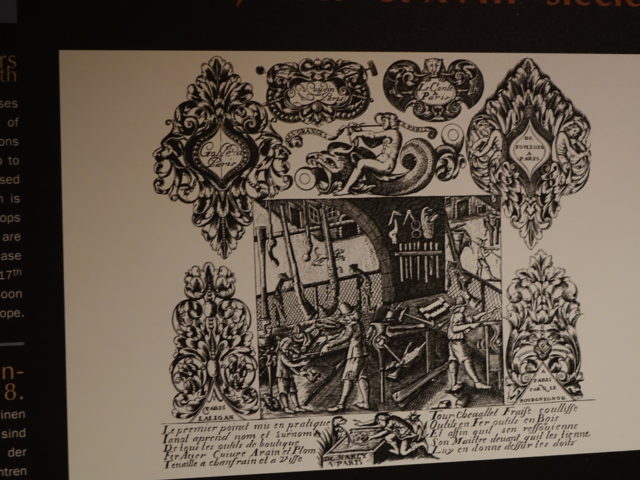 XVIII siècle
rs
th
ses
of
ons
p to
sed
n is
ops
are
ase
17th
oon
ope.
n-
8.
inen
sind
der
ntren
Le Conte
a Paris
DE GRANGES A PARIS
Paris
DE
A
PARIS
PARIS
PARIS
PAR LE
BOURGUIGNON
DE NARCY
A PARIS
Le premier poinct mis en pratique
Janot aprend nom et surnom
De tous les outils de boutique
Fer Acier Cuivre Arain et Plom
Tenaille a chanfrain et a Visse
Tour Chevallet Fraise coullisse
Outils en Fer outils en Bois
Et affin quil sen ressouienne
Son Maitre devant quil les tienne
Luy en donne dessur les doits